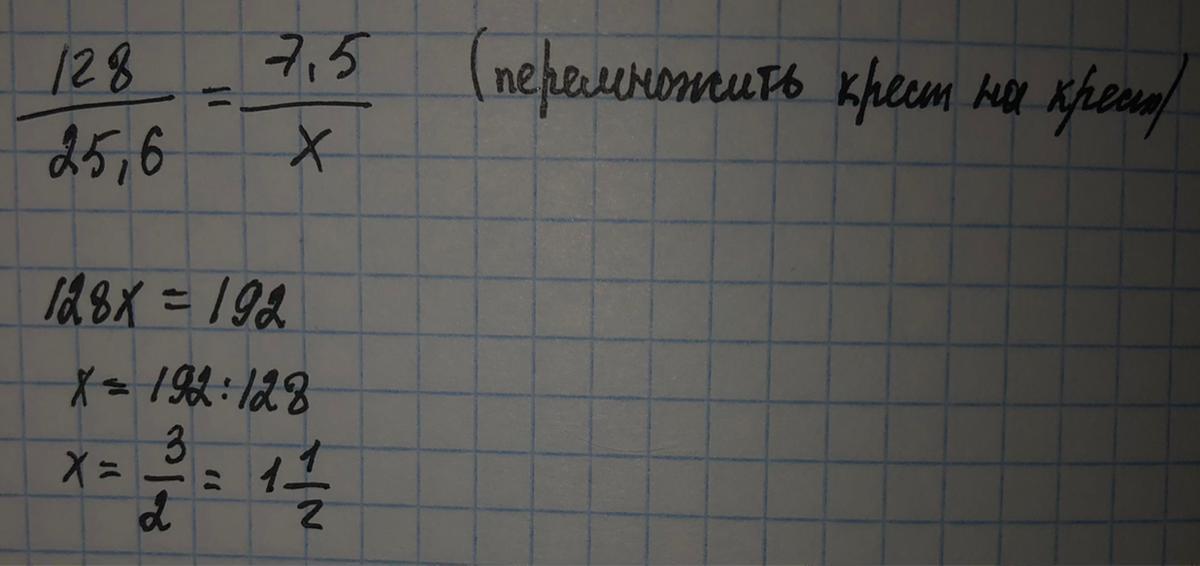 128/25,6 = 7,5/x (перемножить крест на крест)
128x = 192
x = 192:128
x = 3/2 = 1 1/2